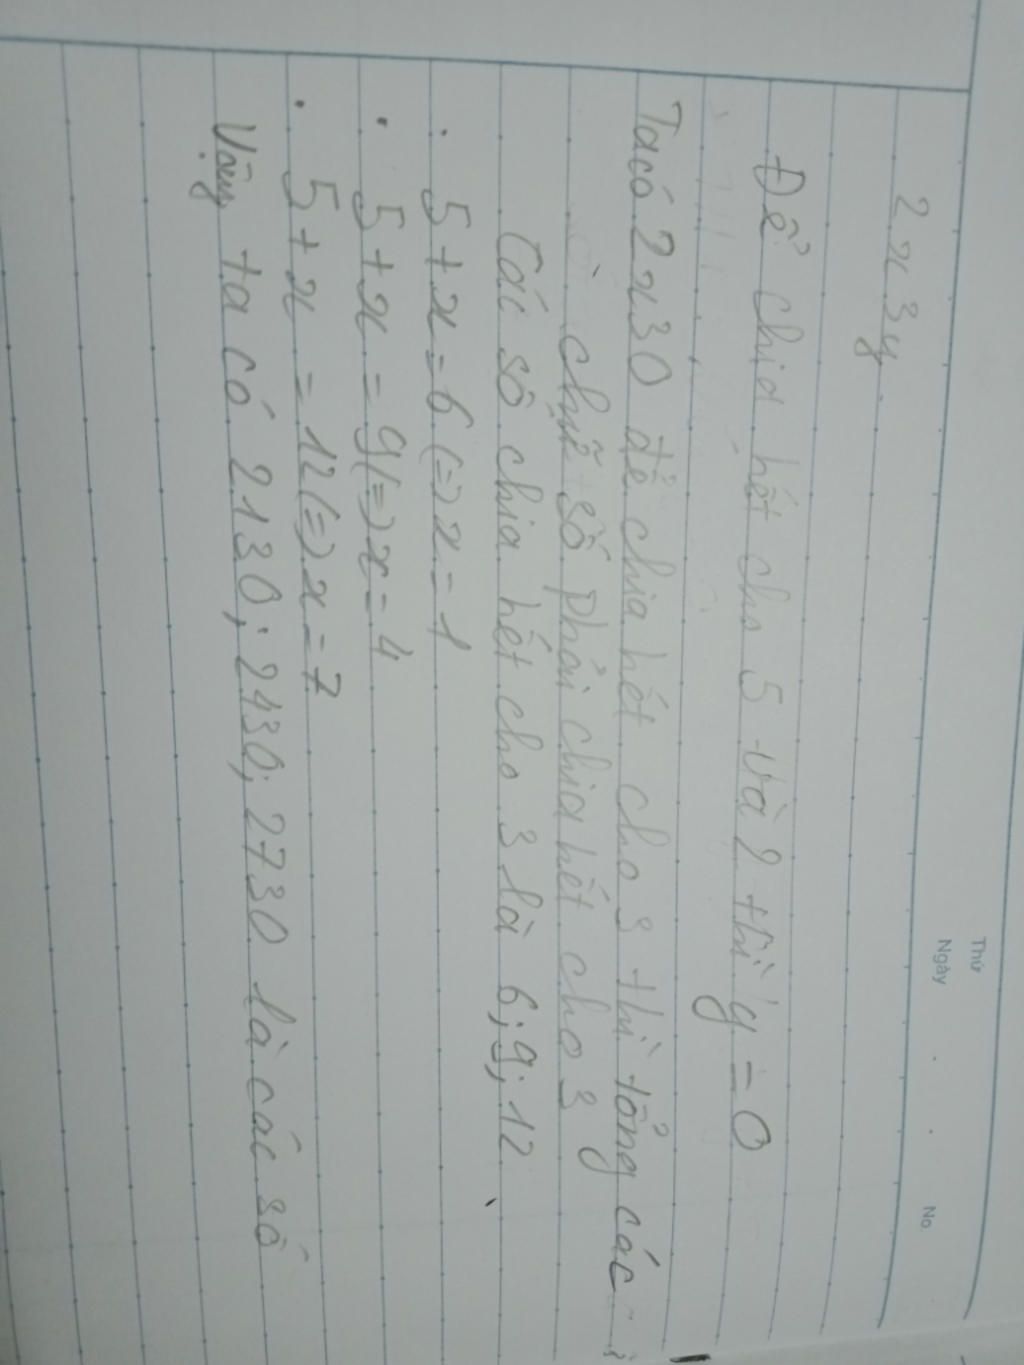 Thứ
Ngày
No.
2x3y
Để chia hết cho 5 và 2 thì y = 0
Ta có 2x30 để chia hết cho 3 thì tổng các
chữ số phải chia hết cho 3
Các số chia hết cho 3 là 6; 9; 12
. 5 + x = 6 (=) x = 1
. 5 + x = 9 (=) x = 4
. 5 + x = 12 (=) x = 7
Vậy ta có 2130; 2430; 2730 là các số